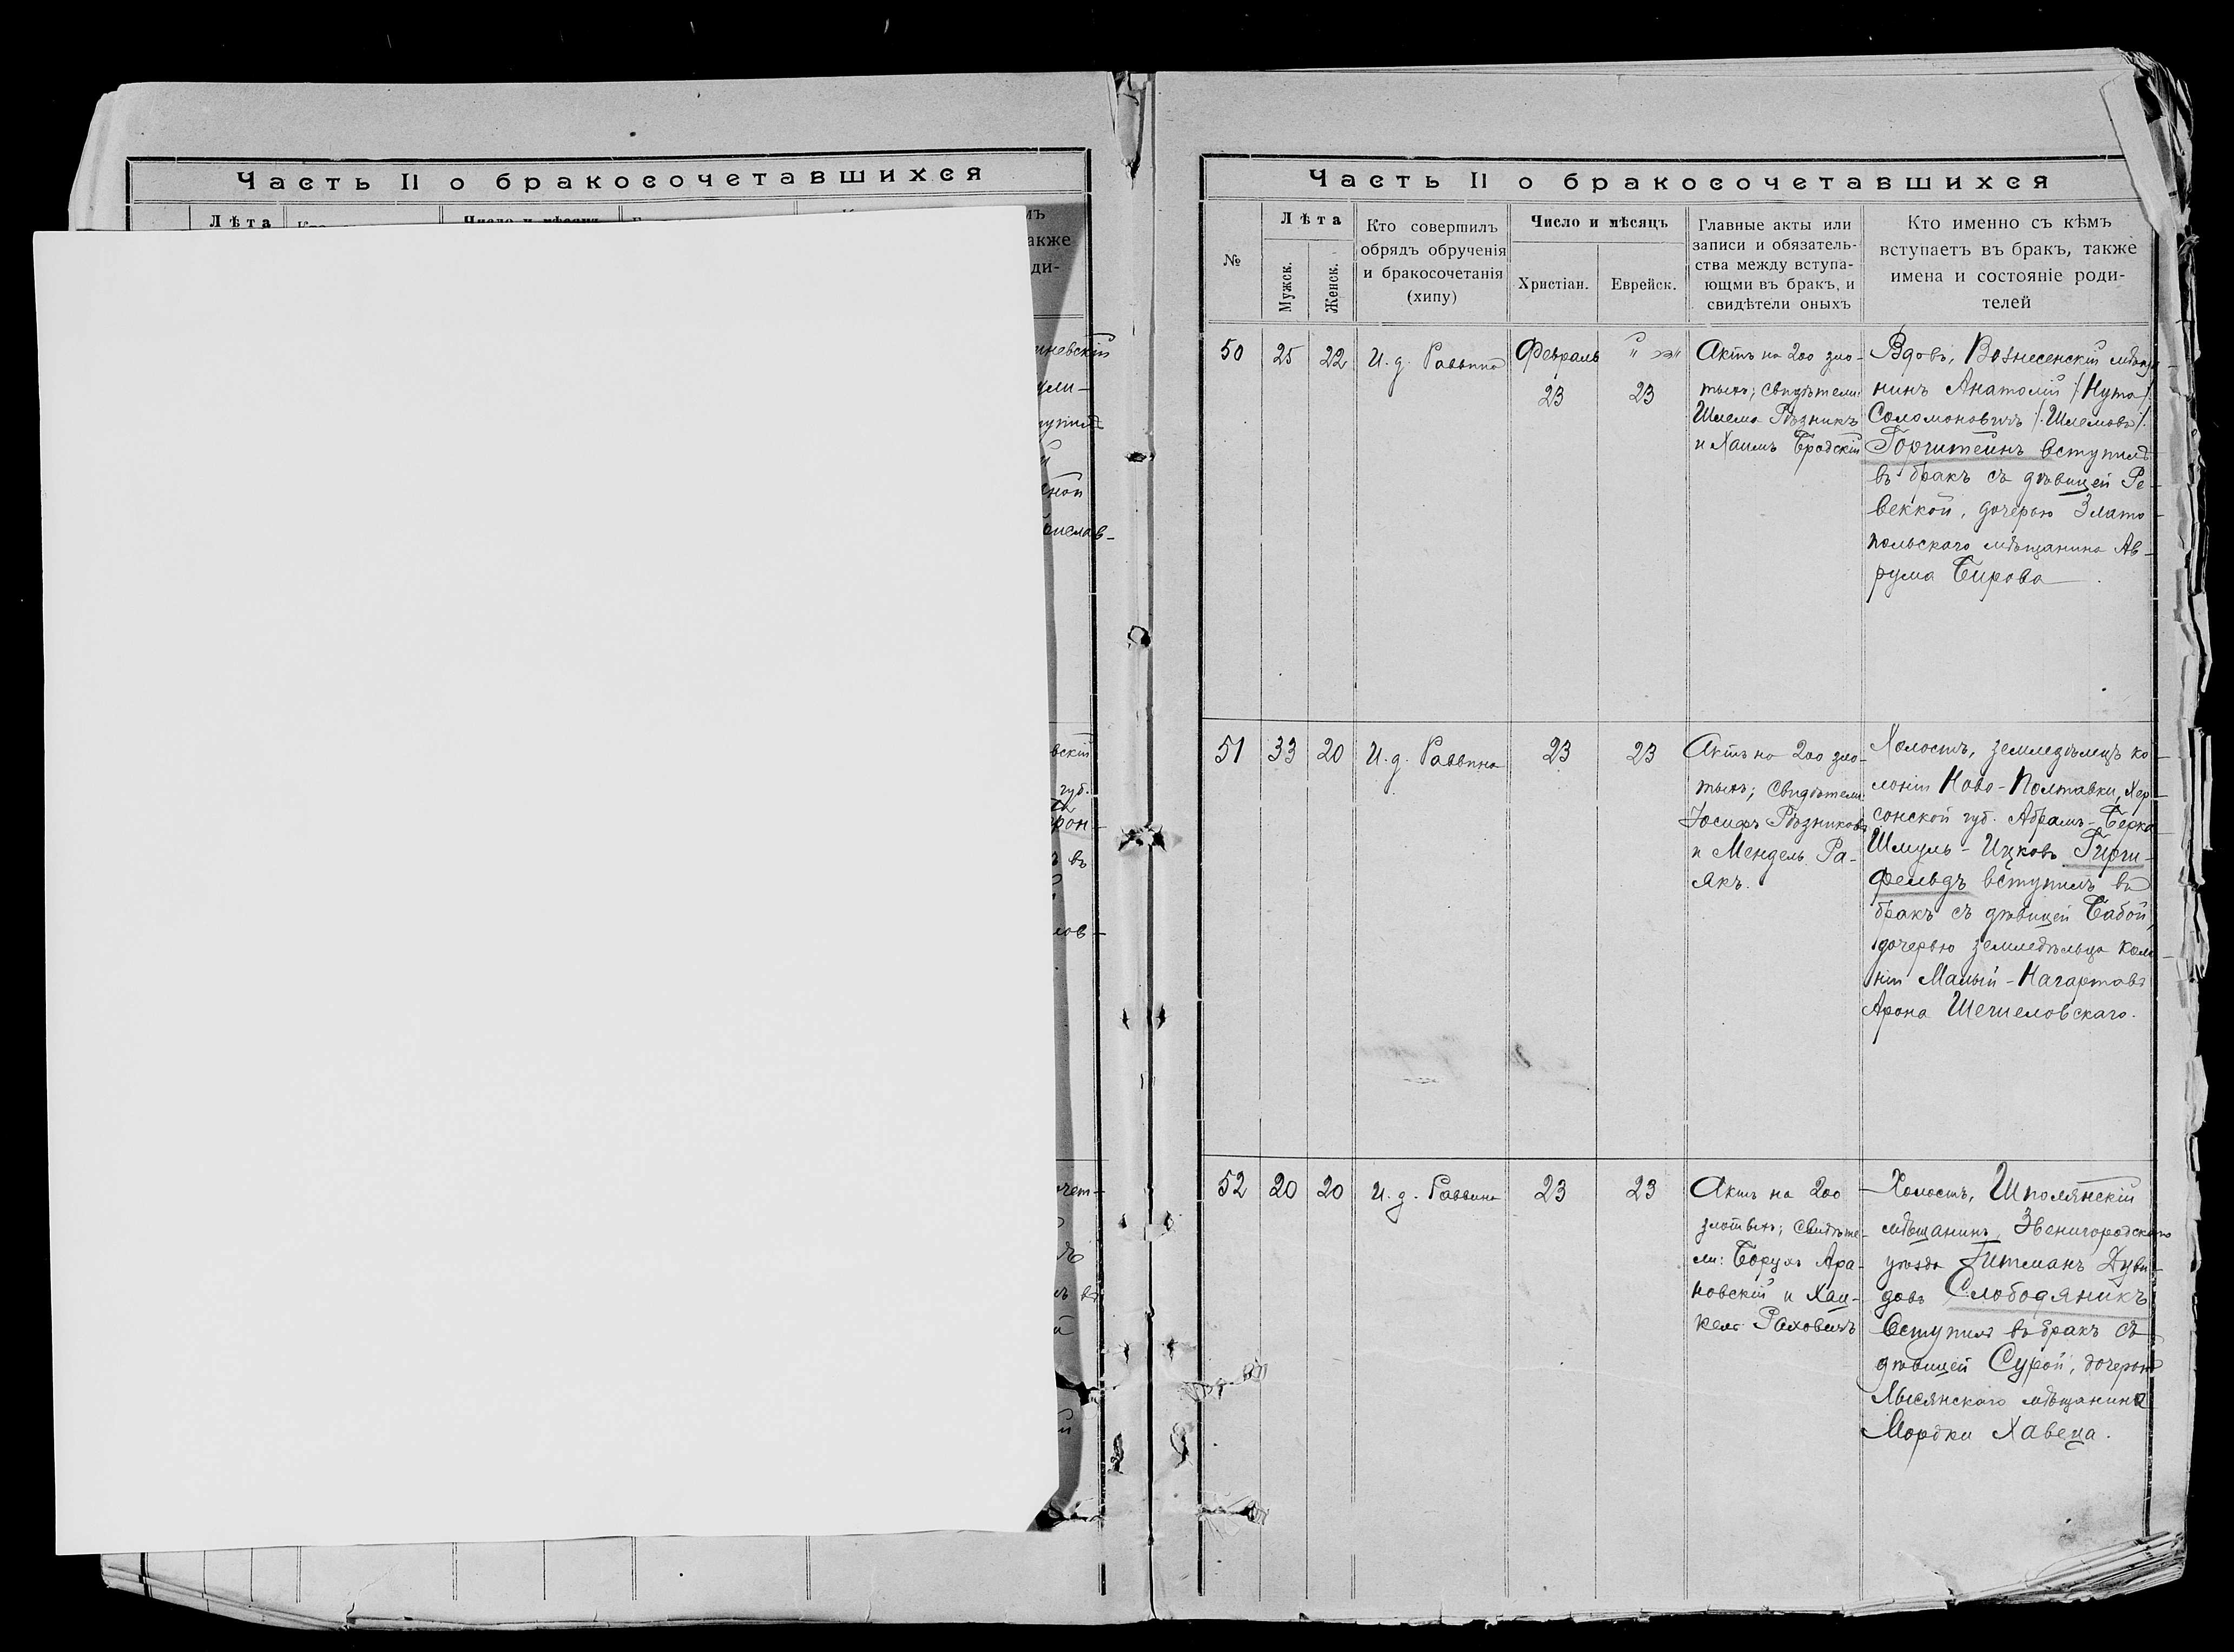 Часть II о бракосочетавшихся
Лѣта
Число и мѣсяцъ
акже
ди-
невскій
ули-
ной
вскій
губ.
рон-
въ
лов-
Часть II о бракосочетавшихся
№
Лѣта
Мужск.
Женск.
Кто совершилъ
обрядъ обрученія
и бракосочетанія
(хипу)
Число и мѣсяцъ
Христіан.
Еврейск.
Главные акты или
записи и обязатель-
ства между вступа-
ющми въ бракъ, и
свидѣтели оныхъ
Кто именно съ кѣмъ
вступаетъ въ бракъ, также
имена и состояніе роди-
телей
50
25
22
И. д. Раввина
Февраль
23
23
Актъ на 200 зло-
тыхъ; свидѣтели:
Шлема Рѣзникъ
и Хаимъ Бродскій
Вдовъ, Вознесенскій мѣща-
нинъ Анатолій /Нута/
Соломоновичъ /Шлемовъ/
Горштейнъ вступилъ
въ бракъ съ дѣвицей Ре-
веккой, дочерью Злато-
польскаго мѣщанина Ав-
рума Бирова
51
33
20
И. д. Раввина
23
23
Актъ на 200 зло-
тыхъ; Свидѣтели:
Іосифъ Рѣзниковъ
и Мендель Ра-
якъ.
Холостъ, земледѣлецъ ко-
лоніи Ново-Полтавки, Хер-
сонской губ. Абрамъ-Берко
Шмуль-Ицковъ Гирш-
фельдъ вступилъ въ
бракъ съ дѣвицей Бабой,
дочерью земледѣльца коло-
ніи Малый-Нагартавъ
Арона
52
20
20
И. д. Раввина
23
23
Актъ на 200
злотыхъ; Свидѣте-
ли: Борухъ Ара-
новскій и Хаи-
кель Раховичъ
Холостъ, Шполянскій
мѣщанинъ, Звенигородскаго
уѣзда Гитманъ Дуви-
довъ Слободяникъ
вступилъ въ бракъ съ
дѣвицей Сурой, дочерью
Лысянскаго мѣщанина
Мордки Хавеца.